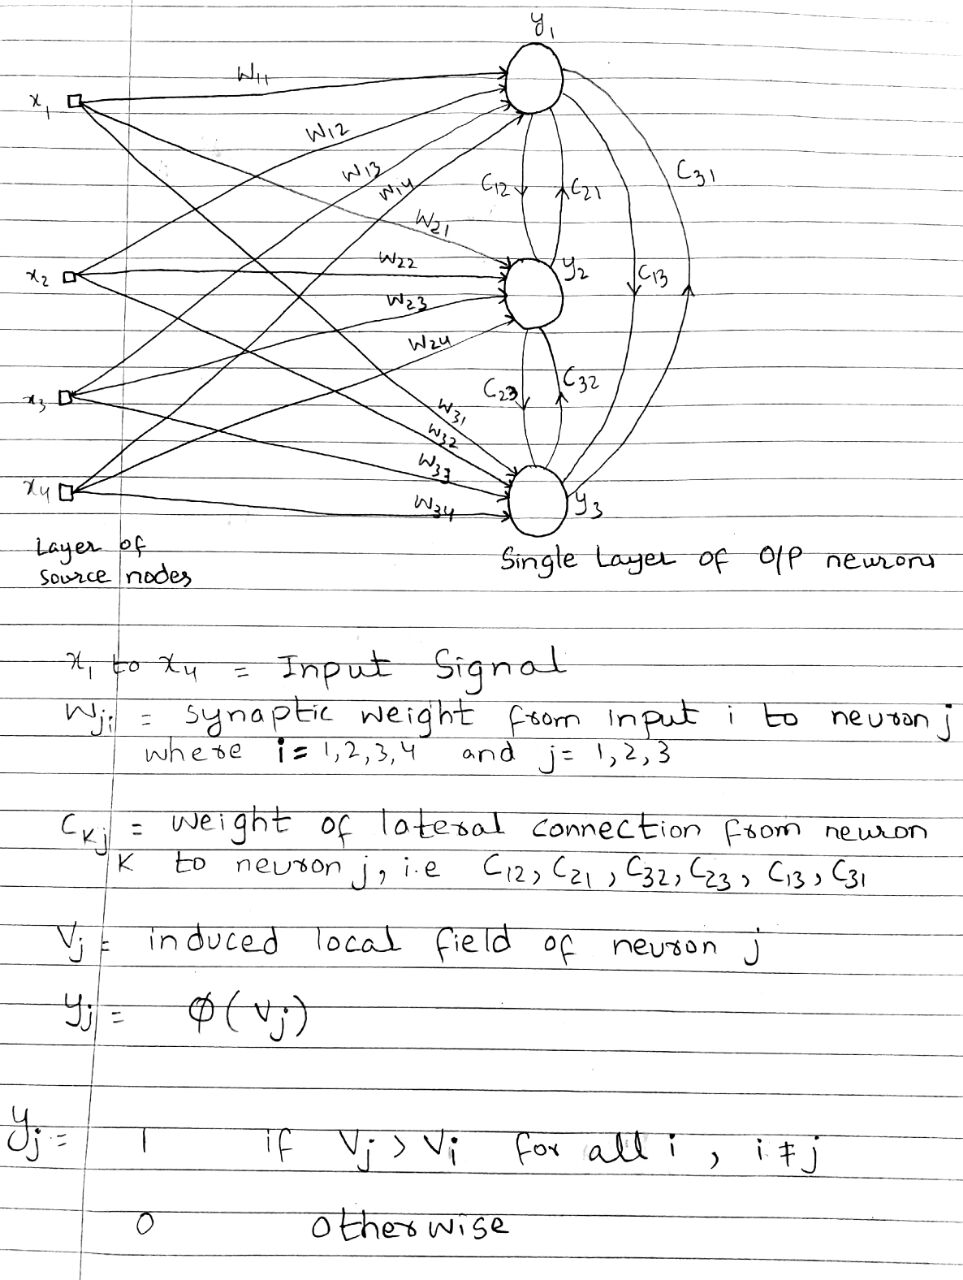 y₁
W₁₁
x₁
W₁₂
W₁₃
W₁₄
C₁₂
C₂₁
C₃₁
W₂₁
x₂
W₂₂
y₂
C₁₃
W₂₃
W₂₄
x₃
C₂₃
C₃₂
W₃₁
W₃₂
W₃₃
x₄
W₃₄
y₃
Layer of
source nodes
Single Layer of O/P neurons
x₁ to x₄ = Input Signal
Wⱼᵢ = synaptic weight from input i to neuron j
where i = 1,2,3,4 and j = 1,2,3
Cₖⱼ = weight of lateral connection from neuron
K to neuron j, i.e C₁₂, C₂₁, C₃₂, C₂₃, C₁₃, C₃₁
Vⱼ = induced local field of neuron j
yⱼ = ϕ(vⱼ)
yⱼ = 1 if Vⱼ > Vᵢ for all i, i ≠ j
0 otherwise